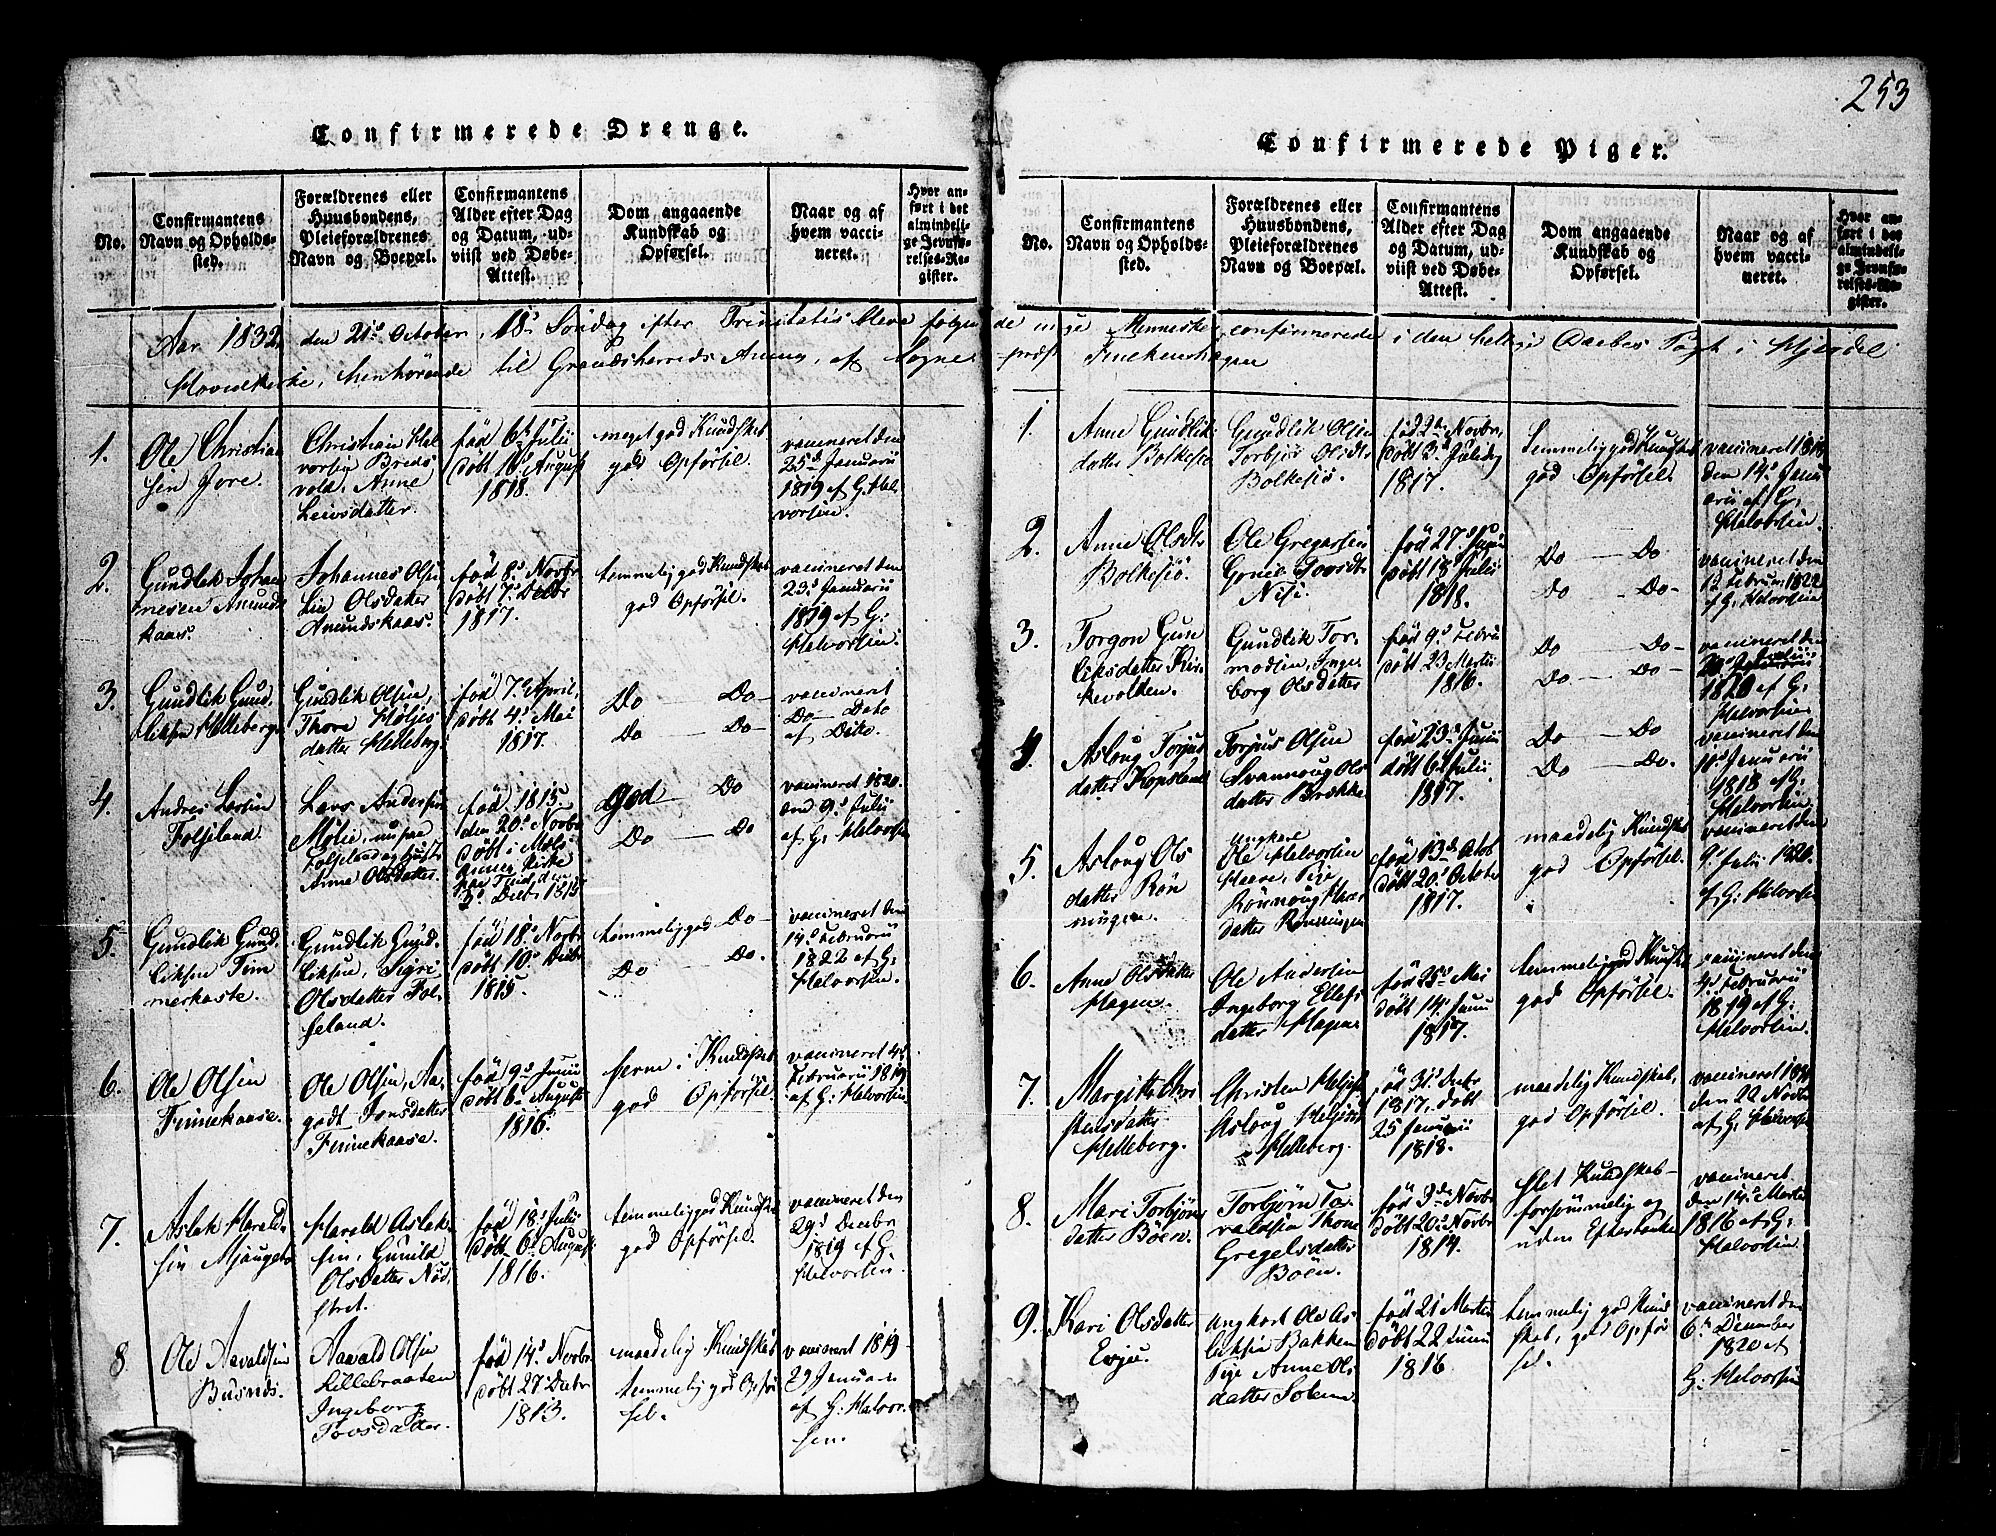 253
Confirmerede Drenge.
No.
Confirmantens
Navn og Opholds-
sted.
Forældrenes eller
Huusbondens,
Pleieforældrenes
Navn og Boepæl.
Confirmantens
Alder efter Dag
og Datum, ud-
viist ved Døbe-
Attest.
Dom angaaende
Kundskab og
Opførsel.
Naar og af
hvem vacci-
neret.
Hvor an-
ført i det
almindeli-
ge Jevnfø-
relses-Re-
gister.
Aar 1832, den 21s October, 18s Søndag efter Trinitatis bleve følgen
Hovedkirke, henhörende til Grandsherreds Annex, af Sogne
1.
Ole Christian
sen Jore.
Christian Hal
vorsen Breds
vold, Anne
Leivsdatter.
fød 6te Julii
döbt 16s August
1818.
meget god Kundskab
god Opförsel.
vaccineret den
25de Januarii
1819 af G: Hal
vorsen.
2.
Gundlik Johan
nesen Amunds
kaas.
Johannes Olsen
Liv Olsdatter
Amundskaas.
fød 8s Novbr
döbt 7s Decbr
1817.
temmelig god Kundskab
god Opförsel.
vaccineret den
23s Januarii
1819 af G:
Halvorsen.
3.
Gundlik Gund
liksen Helleberg
Gundlik Olsen,
Thore Höljes
datter Helleberg
fød 7s April,
döbt 4s Mai
1817.
Do — Do
Do — Do
vaccineret
Do Dato
af Dito.
4.
Andres Larsen
Folseland.
Lars Andersen
Molie, nu paa
Folseland og Hustr.
Anne Olsdatter.
fød 1815.
den 20s Novbr
döbt i
Kirke
den
3s Decbr 1815
God — Do
Do — Do
vaccineret 1820.
den 9s Julii
af G: Halvorsen
5.
Gundlik Gund
liksen Tim
merkaste.
Gundlik Gund
liksen, Sigri
Olsdatter Fol
seland.
fød 18s Novbr
döbt 10s Decbr
1815.
temmelig god Do
Do — Do.
vaccineret den
14s Februarii
1822 af G:
Halvorsen.
6.
Ole Olsen
Finnekaase.
Ole Olsen, Aa-
godt Jonsdatter
Finnekaase.
fød 9s Junii
döbt 6te Augusti
1816.
ferm i Kundskab
god Opförsel.
vaccineret 4s
Februarii 1819
af G: Halvorsen
7.
Aslak Harald
sen Mjaugeto
Harald Aslak-
sen, Gunild
Olsdatter Nød
stret.
fød 18s Julii
döbt 6s August
1816.
temmelig god Kundskab
god Opförsel.
vaccineret den
29s Decbr
1819 af G:
Halvorsen.
8
Ole Aavaldsen
Busnes.
Aavald Olsen
Lillebraaten
Ingeborg
Tovsdatter.
fød 14s Novbr
döbt 27s Decbr
1813.
maadelig Kundskab
temmelig god Opför
sel.
vaccineret 1819
29 Januari
af G: Halvor-
sen.
Confirmerede Piger.
No.
Confirmantens
Navn og Opholds-
sted.
Forældrenes eller
Huusbondens,
Pleieforældrenes
Navn og Boepæl.
Confirmantens
Alder efter Dag
og Datum, ud-
viist ved Døbe-
Attest.
Dom angaaende
Kundskab og
Opførsel.
Naar og af
hvem vacci-
neret.
Hvor an-
ført i det
almindeli-
ge Jevnfø-
relses-Re-
gister.
de unge Mennesker confirmerede i den hellige Daabes Pagt i Hjerdal
præst Finckenhagen
1.
Anne Gundlik
datter Bolkesiö
Gundlik Olsen
Torbjör Olsdtr
Bolkesiö.
fød 2de Novbr,
döbt 3s Juledag
1817.
temmelig god Kundskab
god Opförsel.
vaccineret 1819
den 14s Janu
arii af G:
Halvorsen.
2.
Anne Olsdtr
Bolkesiö.
Ole Gregarsen
Gonil Tovsdtr
Nisi.
fød 27s Juni
döbt 18 Julii
1818.
Do — Do
Do — Do
vaccineret den
12 Februar 1822
af G: Halvorsen
3.
Torgon Gun
liksdatter Kir
kevolden.
Gundlik Tor-
modsen, Inge
borg Olsdatter
fød 9s Febru
döbt 23 Martii
1816.
Do — Do
Do — Do
vaccineret den
1820 af G:
Halvorsen
4.
Aslaug Torjus
datter Kopsland
Torjus Olsen
Svannoug Ols
datter Brække
fød 23s Junii
döbt 6te Julii
1817.
Do — Do
Do — Do.
vaccineret den
11s Januarii
1818 af G:
Halvorsen
5.
Asloug Ols
datter Rön
ningen.
Ungkarl
Ole Halvorsen
Haave, Pige
Rönnoug Hans
datter Rönningen
fød 13s Octbr
döbt 20s Octobr
1817.
maadelig Kundskab
god Opförsel.
vaccineret den
9s Juli 1820.
af G: Halvorsen
6.
Anne Olsdatter
Hagen.
Ole Andersen
Ingeborg Ellefs
datter Hagen
fød 25s Mai
döbt 14s Junii
1817.
temmelig god Kundskab
god Opförsel.
vaccineret den
4s Februarii
1819 af G:
Halvorsen.
7.
Margit Chri
stensdatter
Helleberg.
Christen Höljesen
Aslaug Höljesdtr
Helleberg.
fød 31s Decbr
1817, döbt
25 Januarii
1818.
maadelig Kundskab,
god Opförsel.
den 22 Novbr
af G: Halvorsen
8.
Mari Torbjörns
datter Böen.
Torbjörn Ta
valdsen Thone
Gregelsdatter
Böen.
fød 3de Novbr
döbt 20s Novbr
1814.
slet Kundskab-
forsömmelig og
uden Eftertanke
vaccineret
den 14s Martii
1816 af G:
Halvorsen.
9.
Kari Olsdatter
Evju.
Ungkarl Ole As
laksen Bakken
Pige Anne Ols
datter Solem
fød 21 Martii
döbt 22 Junii
1816.
temmelig god Kund
skab, god Opför
sel.
vaccineret den
6te December
1820 af
G: Halvorsen